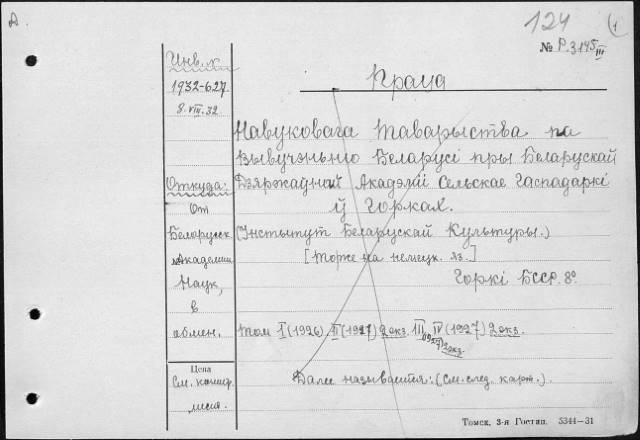 124 1
№ Р.3145 III
Инв. к.
1932-627
8.VIII.32
Праца
Навуковага таварыства па
вывучэньню Беларусі пры Беларускай
Откуда: Дзяржаўнай Акадэміі Сельскае Гаспадаркі
От ў Горках.
Белорусск. (Інстытут Беларускай Культуры.)
Академии [Тоже на немецк. яз.]
Наук, Горкі БССР. 8º
в
обмен. Том I (1926) II (1927) 2 экз. III, IV (1927) 2 экз.
2 экз.
Цена
См. Далее называется: (См. след. карт.).
Томск, 3-я Гостип. 5344—31